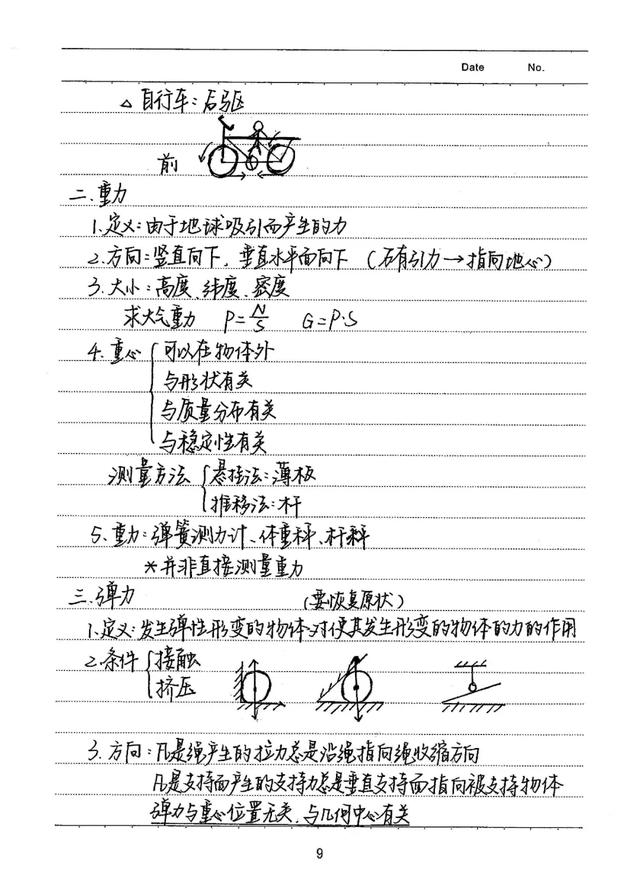 Date No.
△自行车:后驱
前
二.重力
1.定义:由于地球吸引而产生的力
2.方向:竖直向下,垂直水平面向下 (万有引力→指向地心)
3.大小:高度、纬度、密度
求大气重力 P=N/S G=P·S
4.重心 { 可以在物体外
与形状有关
与质量分布有关
与稳定性有关
测量方法 { 悬挂法:薄板
推移法:杆
5.重力:弹簧测力计、体重秤、杆秤
*并非直接测量重力
三.弹力 (要恢复原状)
1.定义:发生弹性形变的物体对使其发生形变的物体的力的作用
2.条件 { 接触
挤压
3.方向:凡是绳产生的拉力总是沿绳指向绳收缩方向
凡是支持面产生的支持力总是垂直支持面指向被支持物体
弹力与重心位置无关,与几何中心有关
9